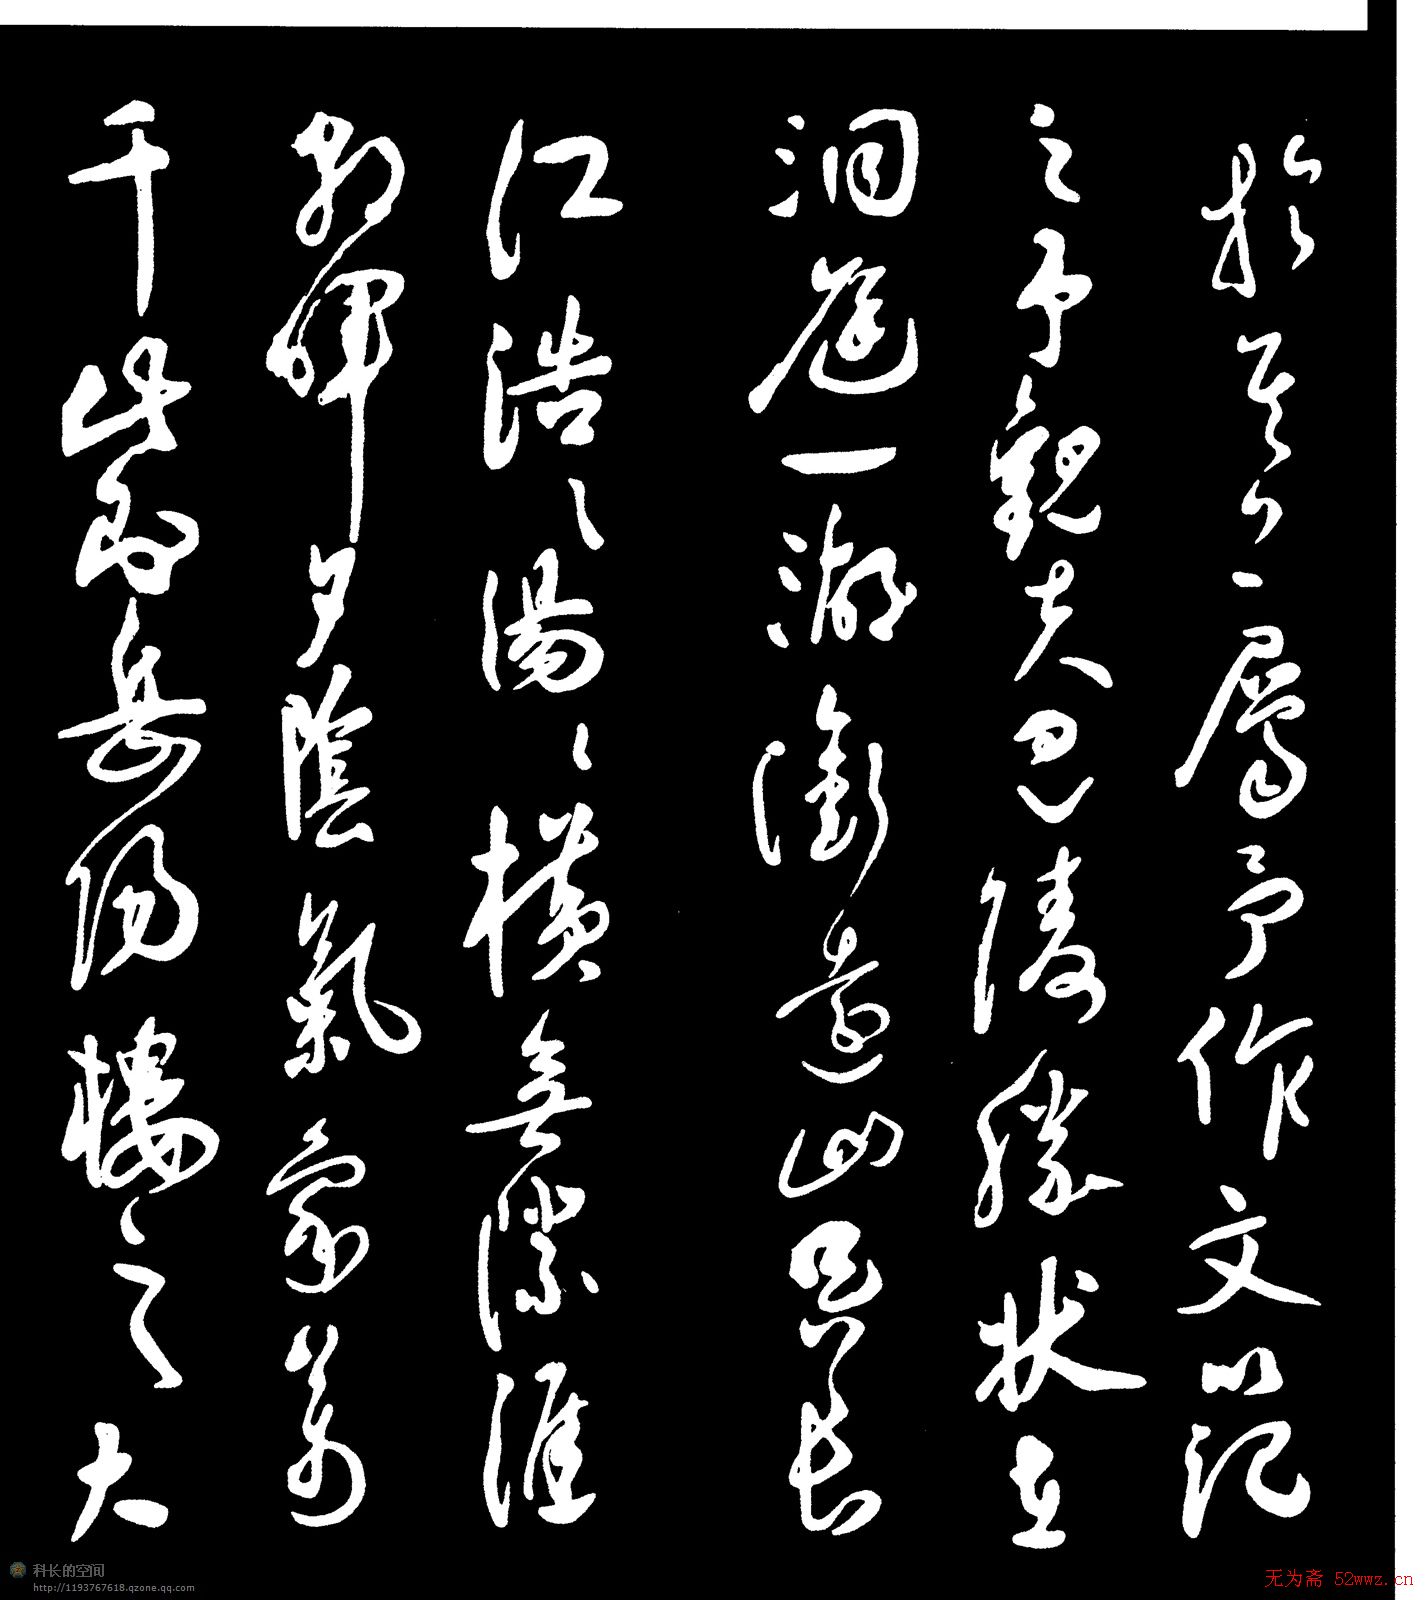 於其上屬予作文以記
之予觀夫巴陵勝狀在
洞庭一湖銜遠山吞長
江浩〻湯〻橫無際涯
朝暉夕陰氣象萬
千此則岳陽樓之大
科长的空间
http://1193767618.qzone.qq.com
无为斋 52wwz.cn